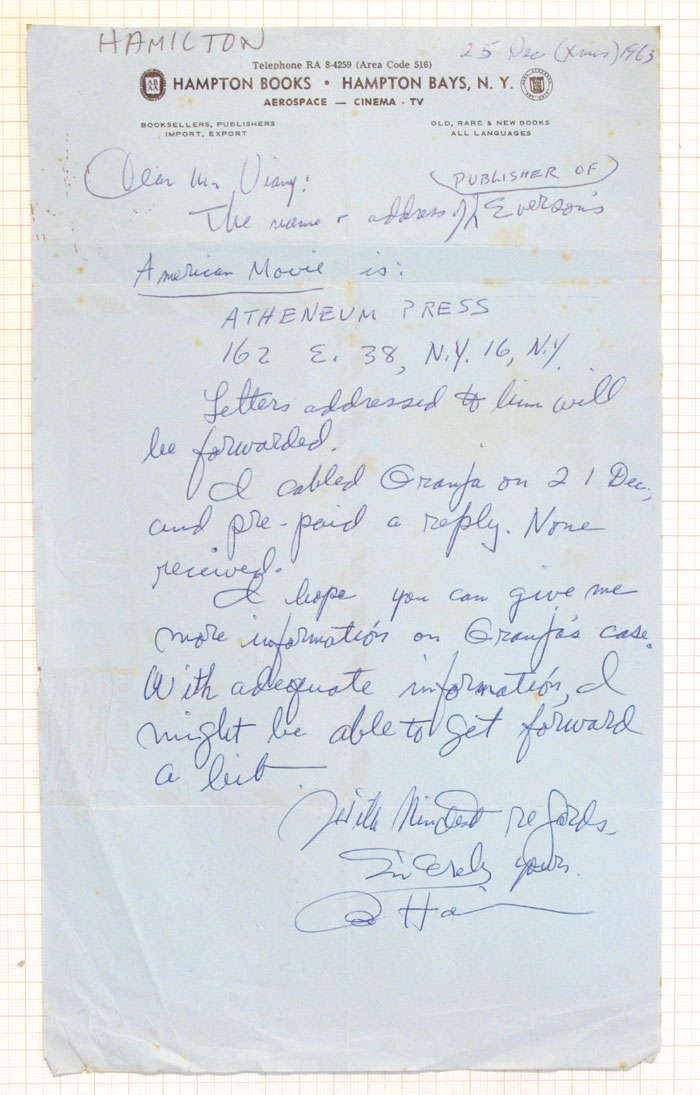 HAMILTON
25 Dec (Xmas) 1963
Telephone RA 8-4259 (Area Code 516)
HAMPTON BOOKS • HAMPTON BAYS, N. Y.
AEROSPACE — CINEMA - TV
BOOKSELLERS, PUBLISHERS
IMPORT, EXPORT
OLD, RARE & NEW BOOKS
ALL LANGUAGES
Dear Mr Viany:
PUBLISHER OF
The name & address of Everson's
American Movie is:
ATHENEUM PRESS
162 E. 38, N.Y. 16, N.Y.
Letters addressed to him will
be forwarded.
I cabled Granja on 21 Dec,
and pre-paid a reply. None
received.
I hope you can give me
more information on Granja's case.
With adequate information, I
might be able to get forward
a bit
With kindest regards.
Sincerely yours.